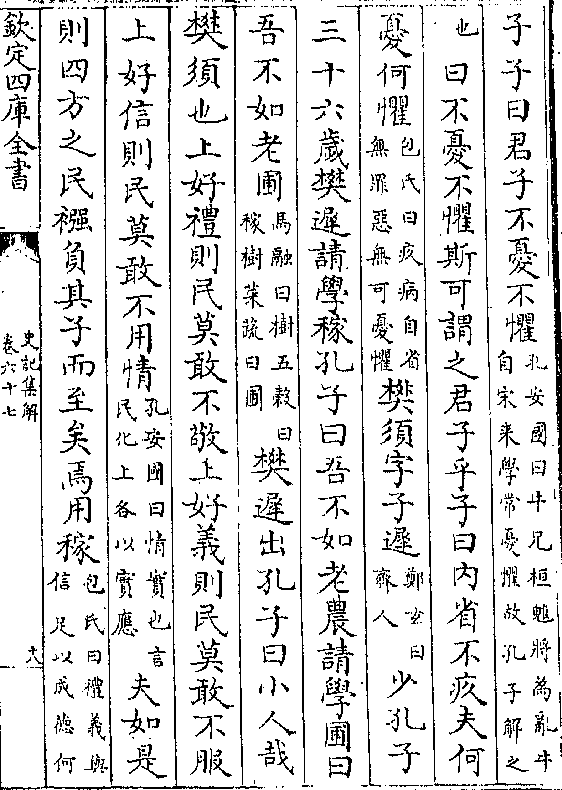 子子曰君子不憂不懼孔安國曰牛兄桓魋將為亂牛自宋来學常憂懼故孔子解之
也曰不憂不懼斯可謂之君子乎子曰内省不疚夫何
憂何懼包氏曰疚病自省無罪惡無可憂懼樊須字子遲鄭玄曰齊人少孔子
三十六歲樊遲請學稼孔子曰吾不如老農請學圃曰
吾不如老圃馬融曰樹五穀曰稼樹菜蔬曰圃樊遲出孔子曰小人哉
樊須也上好禮則民莫敢不敬上好義則民莫敢不服
上好信則民莫敢不用情孔安國曰情實也言民化上各以實應夫如是
則四方之民襁負其子而至矣焉用稼包氏曰禮義與信足以成德何
欽定四庫全書
史記集解
卷六十七
十八